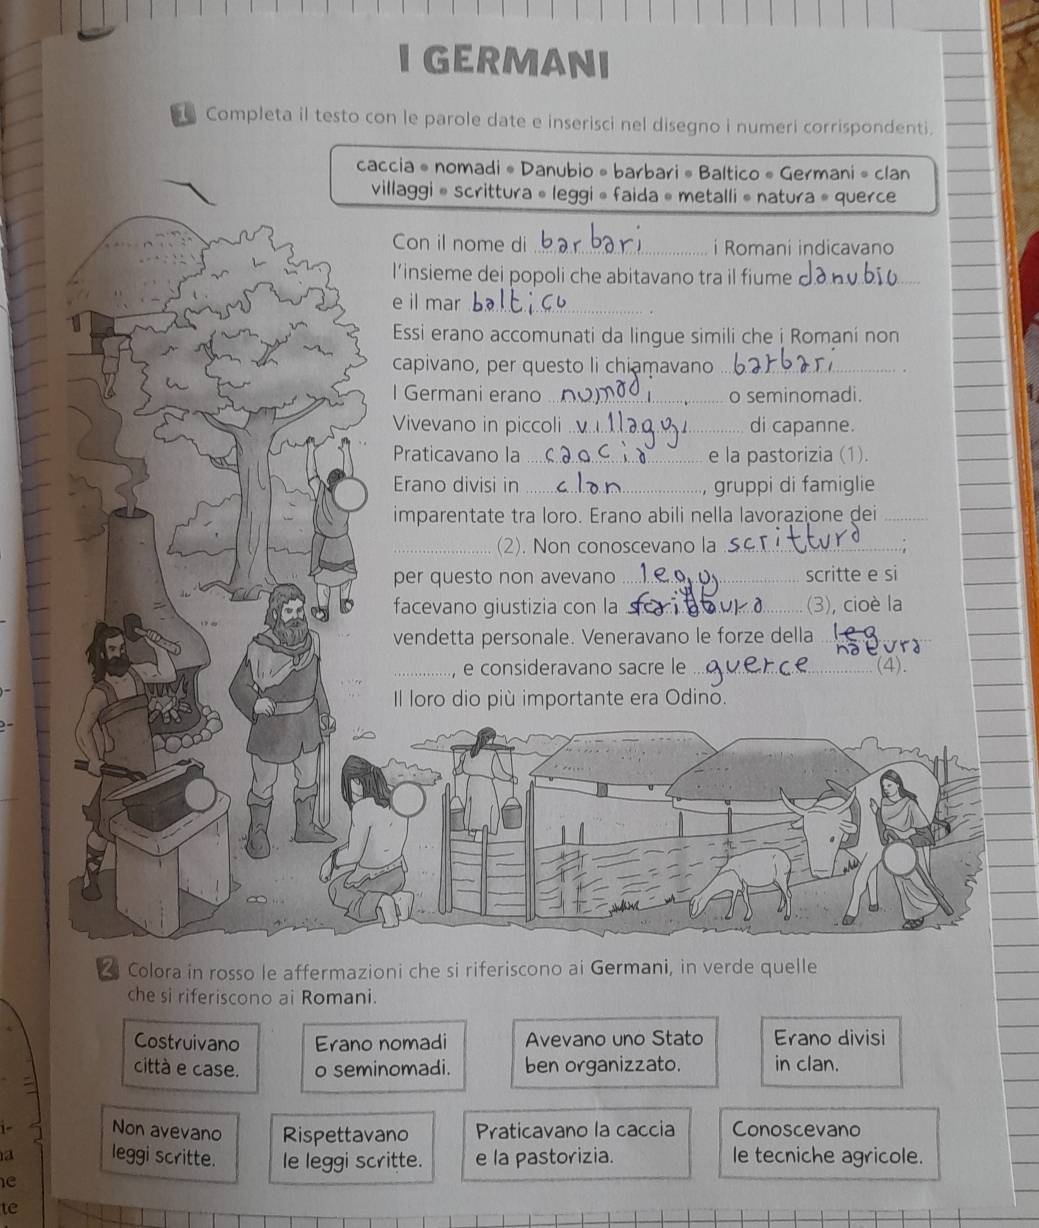 I GERMANI
1 Completa il testo con le parole date e inserisci nel disegno i numeri corrispondenti.
caccia • nomadi • Danubio • barbari • Baltico • Germani • clan
villaggi • scrittura • leggi • faida • metalli • natura • querce
Con il nome di barbari i Romani indicavano
l'insieme dei popoli che abitavano tra il fiume danubio
e il mar baltico.
Essi erano accomunati da lingue simili che i Romani non
capivano, per questo li chiamavano barbari.
I Germani erano nomadi o seminomadi.
Vivevano in piccoli villaggi di capanne.
Praticavano la caccia e la pastorizia (1).
Erano divisi in clan, gruppi di famiglie
imparentate tra loro. Erano abili nella lavorazione dei
(2). Non conoscevano la scrittura;
per questo non avevano leggi scritte e si
facevano giustizia con la (3), cioè la
vendetta personale. Veneravano le forze della leg
natura, e consideravano sacre le querce (4).
Il loro dio più importante era Odino.
2 Colora in rosso le affermazioni che si riferiscono ai Germani, in verde quelle
che si riferiscono ai Romani.
Costruivano
città e case.
Erano nomadi
o seminomadi.
Avevano uno Stato
ben organizzato.
Erano divisi
in clan.
Non avevano
leggi scritte.
Rispettavano
le leggi scritte.
Praticavano la caccia
e la pastorizia.
Conoscevano
le tecniche agricole.